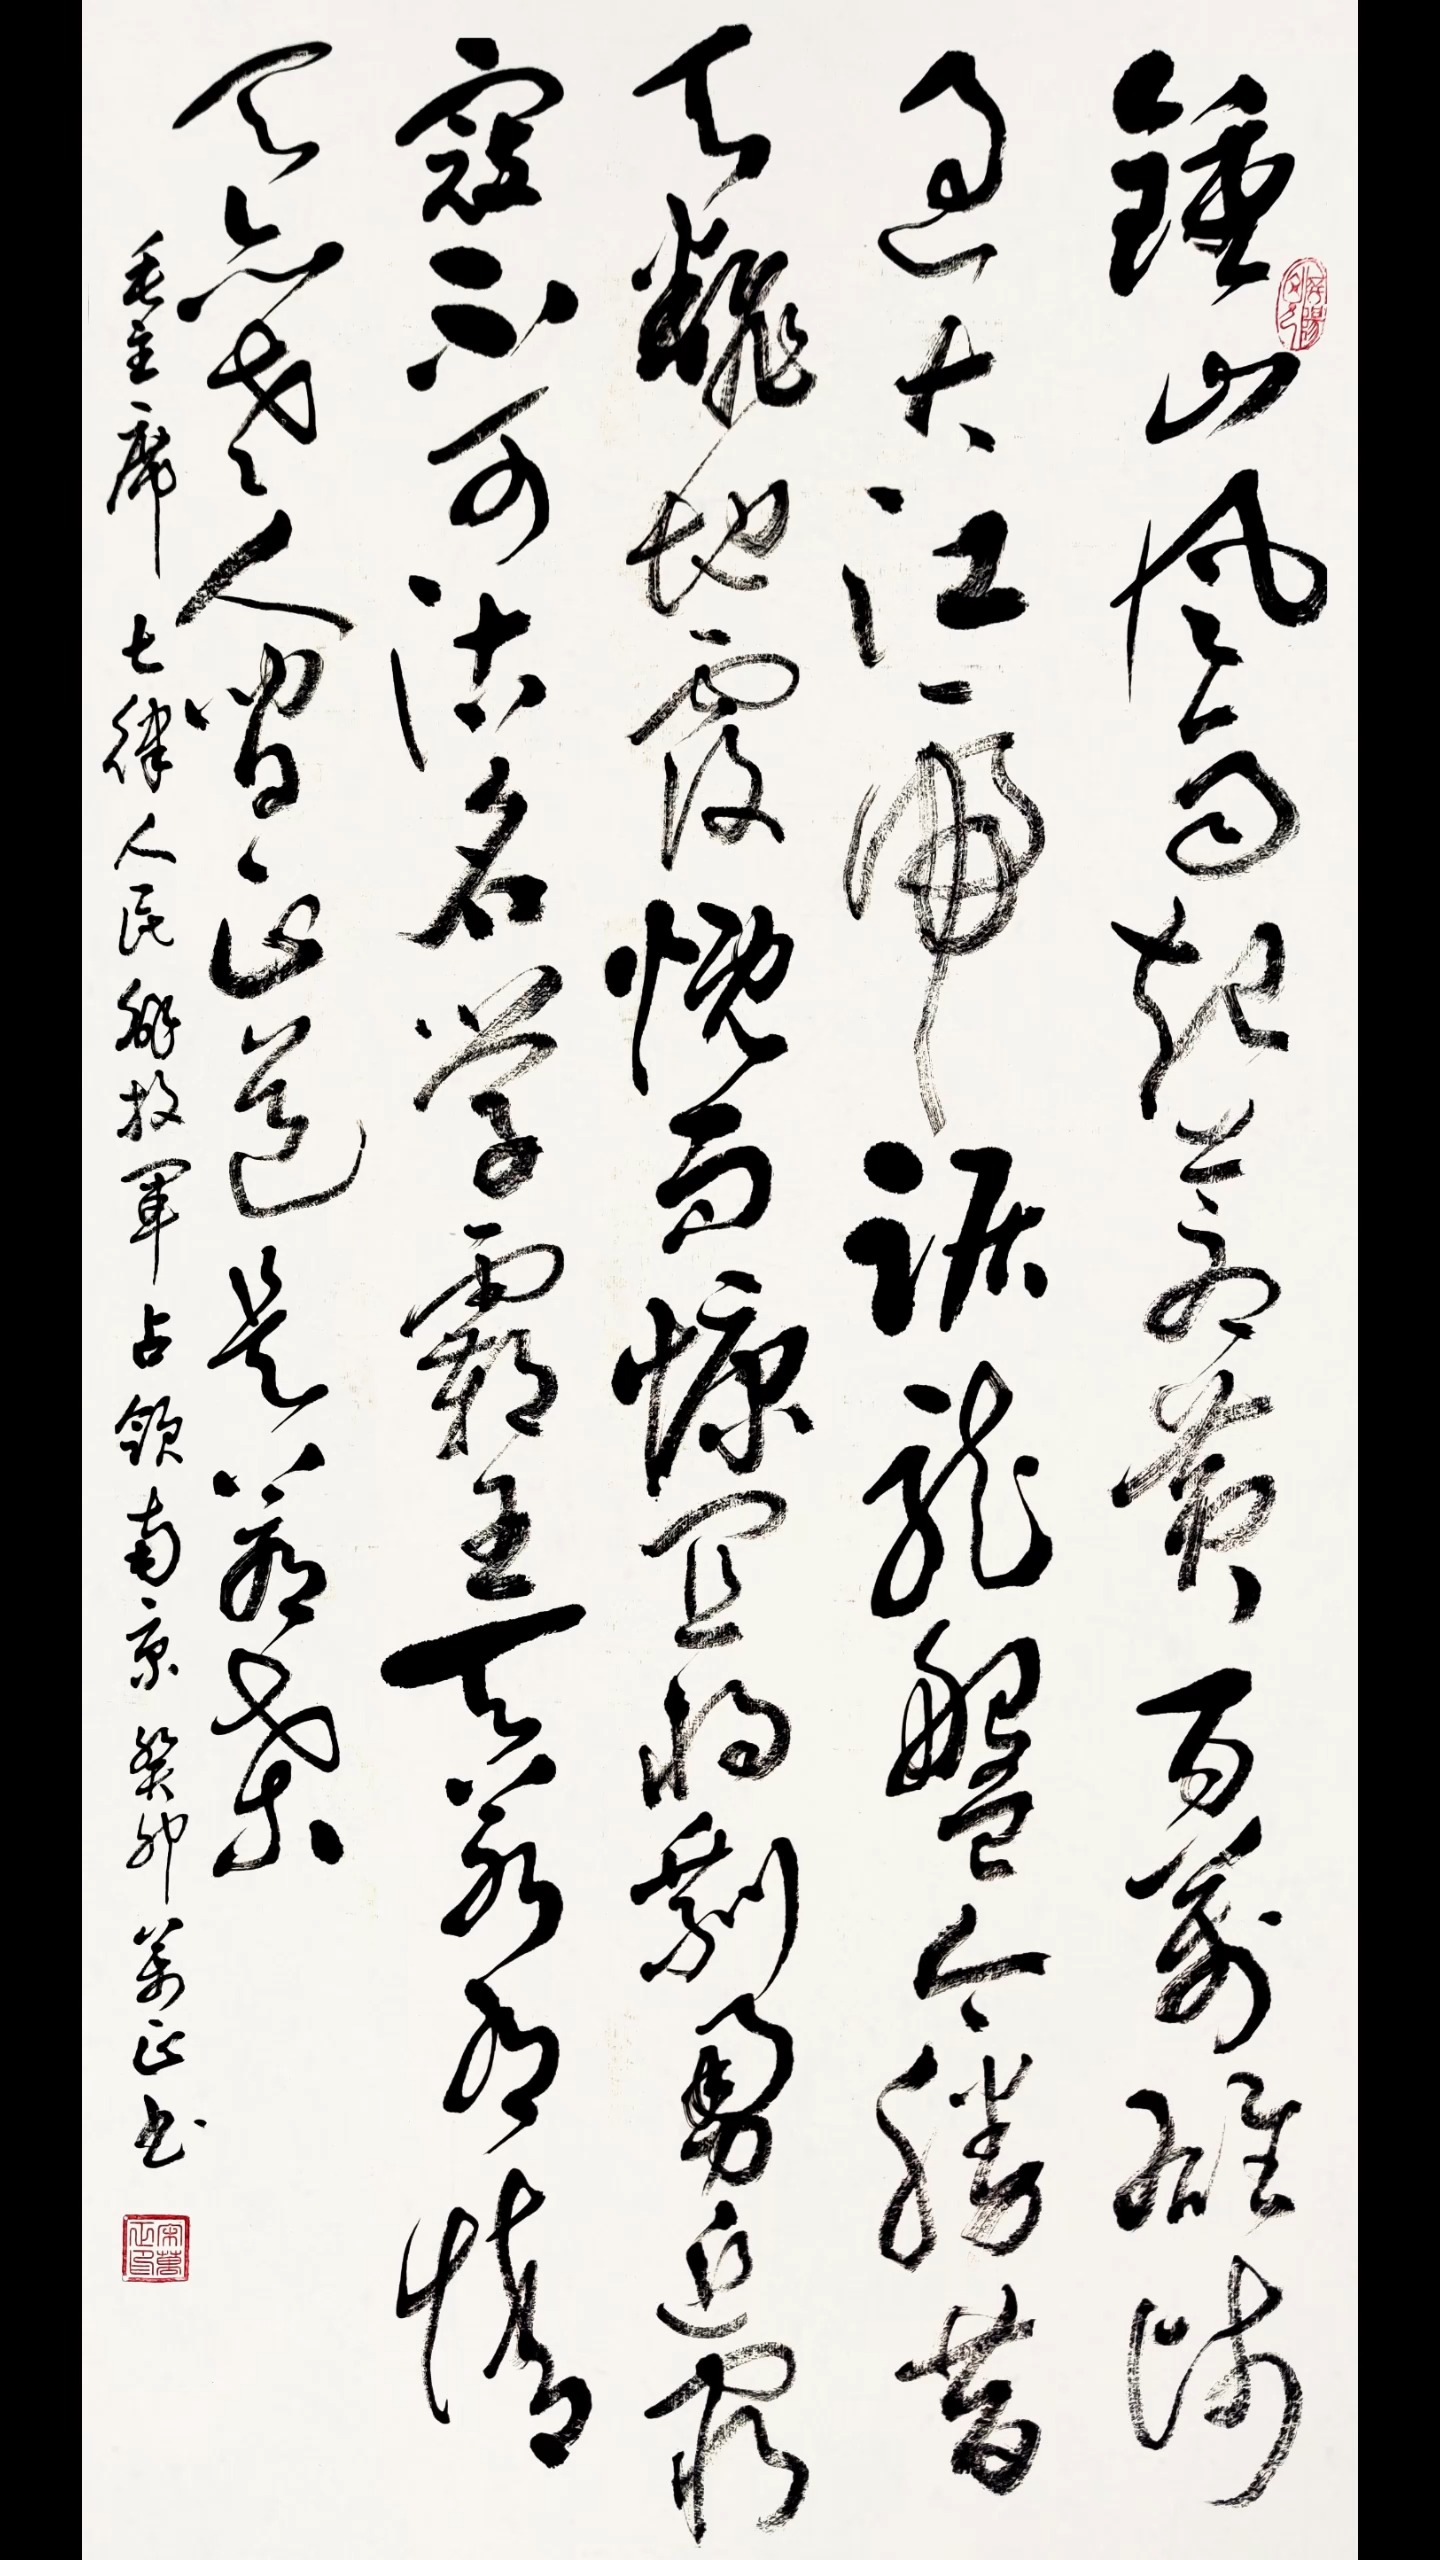 鍾山风雨起蒼黄百萬雄师
过大江虎踞龙盤今勝昔
天翻地覆慨而慷宜将剩勇追窮
寇不可沽名学霸王天若有情
天亦老人间正道是滄桑
毛主席 七律 人民解放軍占領南京 癸卯 萬正书
宋萬正印